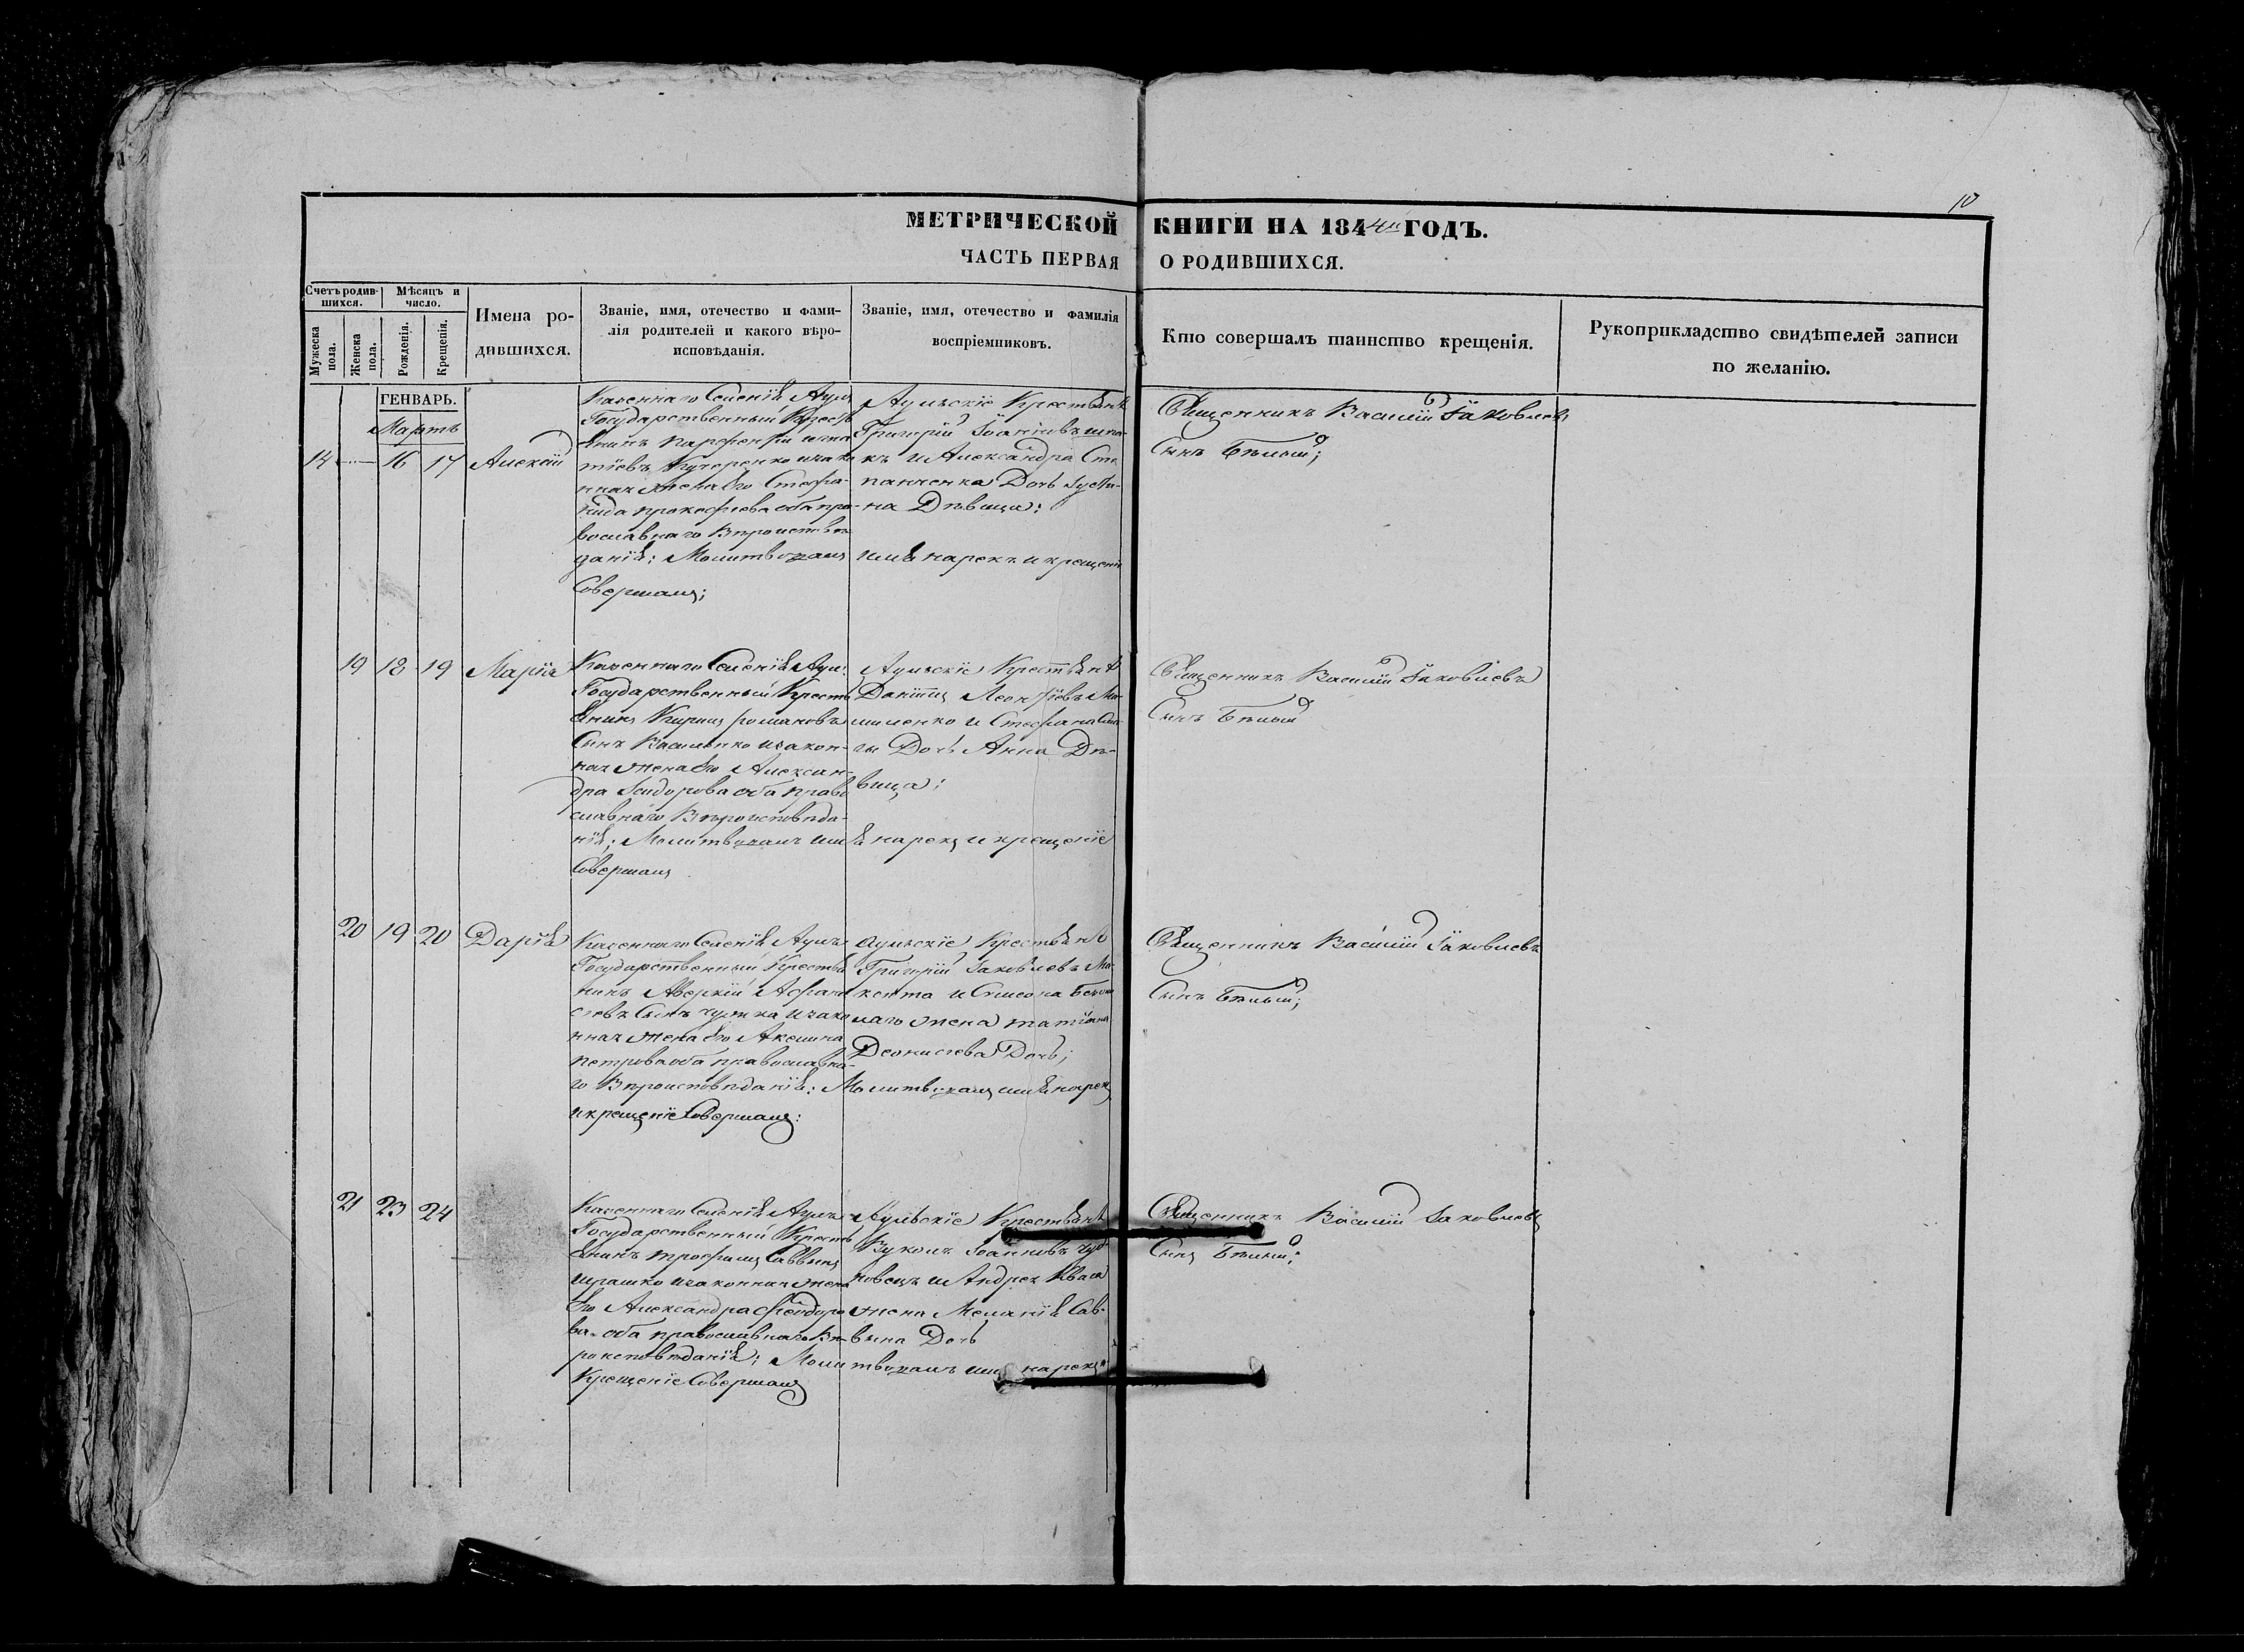 10
МЕТРИЧЕСКОЙ КНИГИ НА 1844й ГОДЪ.
ЧАСТЬ ПЕРВАЯ О РОДИВШИХСЯ.
Счетъ родив-
шихся.
Мужеска
пола.
Женска
пола.
Мѣсяцъ и
число.
Рожденія.
Крещенія.
Имена ро-
дившихся.
Званіе, имя, отечество и фами-
лія родителей и какого вѣро-
исповѣданія.
Званіе, имя, отечество и фамилія
воспріемниковъ.
Кто совершалъ таинство крещенія.
Рукоприкладство свидѣтелей записи
по желанію.
ГЕНВАРЬ.
Мартъ
14 16 17 Алексій
Казеннаго Селенія Аулъ
Государственный Кресть
янинъ Парфеній
Кучеренко изако
нная жена его Стефа-
нида Прокофіева оба пра-
вославнаго Вѣроисповѣ
данія: Молитвовалъ
Совершалъ;
Аульскіе Крестьяне
Григорій Іоанновъ
къ и Александра Сте
паненка Дочь Іусти-
на Дѣвица:
имя нарекъ и крещеніе
Священникъ Василій Іаковлевъ
Сынъ Бѣлый;
19 18 19 Марія
Казеннаго Селенія Аулъ
Государственный Кресть
янинъ Кирилъ Романовъ
Сынъ Василенко изакон-
ная жена его Алексан-
дра Ісидорова оба право
славнаго Вѣроисповѣда-
нія; Молитвовалъ им
Совершалъ
Аульскіе Крестьяне
Даніилъ Леонтіевъ Ма-
миленко и Стефана
Дочь Анна Дѣ-
вица:
я нарекъ и крещеніе
Священникъ Василій Іаковлевъ
Сынъ Бѣлый
20 19 20 Дарія
Казеннаго Селенія Аулъ
Государственный Крестья
нинъ Аверкій Афана
сіевъ Сынъ изако
нная жена его Акелина
Петрова оба православна-
го Вѣроисповѣданія: Молитвовалъ имя нарекъ
и крещеніе Совершалъ:
Аульскіе Крестьяне
Григорій Іаковлевъ Ма-
кота и Симеона
жена Татіана
Деонисіева Дочь;
Священникъ Василій Іаковлевъ
Сынъ Бѣлый;
21 23 24
Казеннаго Селенія Аулъ
Государственный Кресть
янинъ Трофимъ Саввинъ
изаконная жена
его Александра Феодоро
ва оба православнаго Вѣ-
роисповѣданія; Молитвовалъ имя нарекъ и
Крещеніе Совершалъ
Аульскіе Крестьяне
Вуколъ Іоанновъ Чуб
новецъ и Андрея Кваса
жена Меланія Сав-
вина Дочь
Священникъ Василій Іаковлевъ
Сынъ Бѣлый;